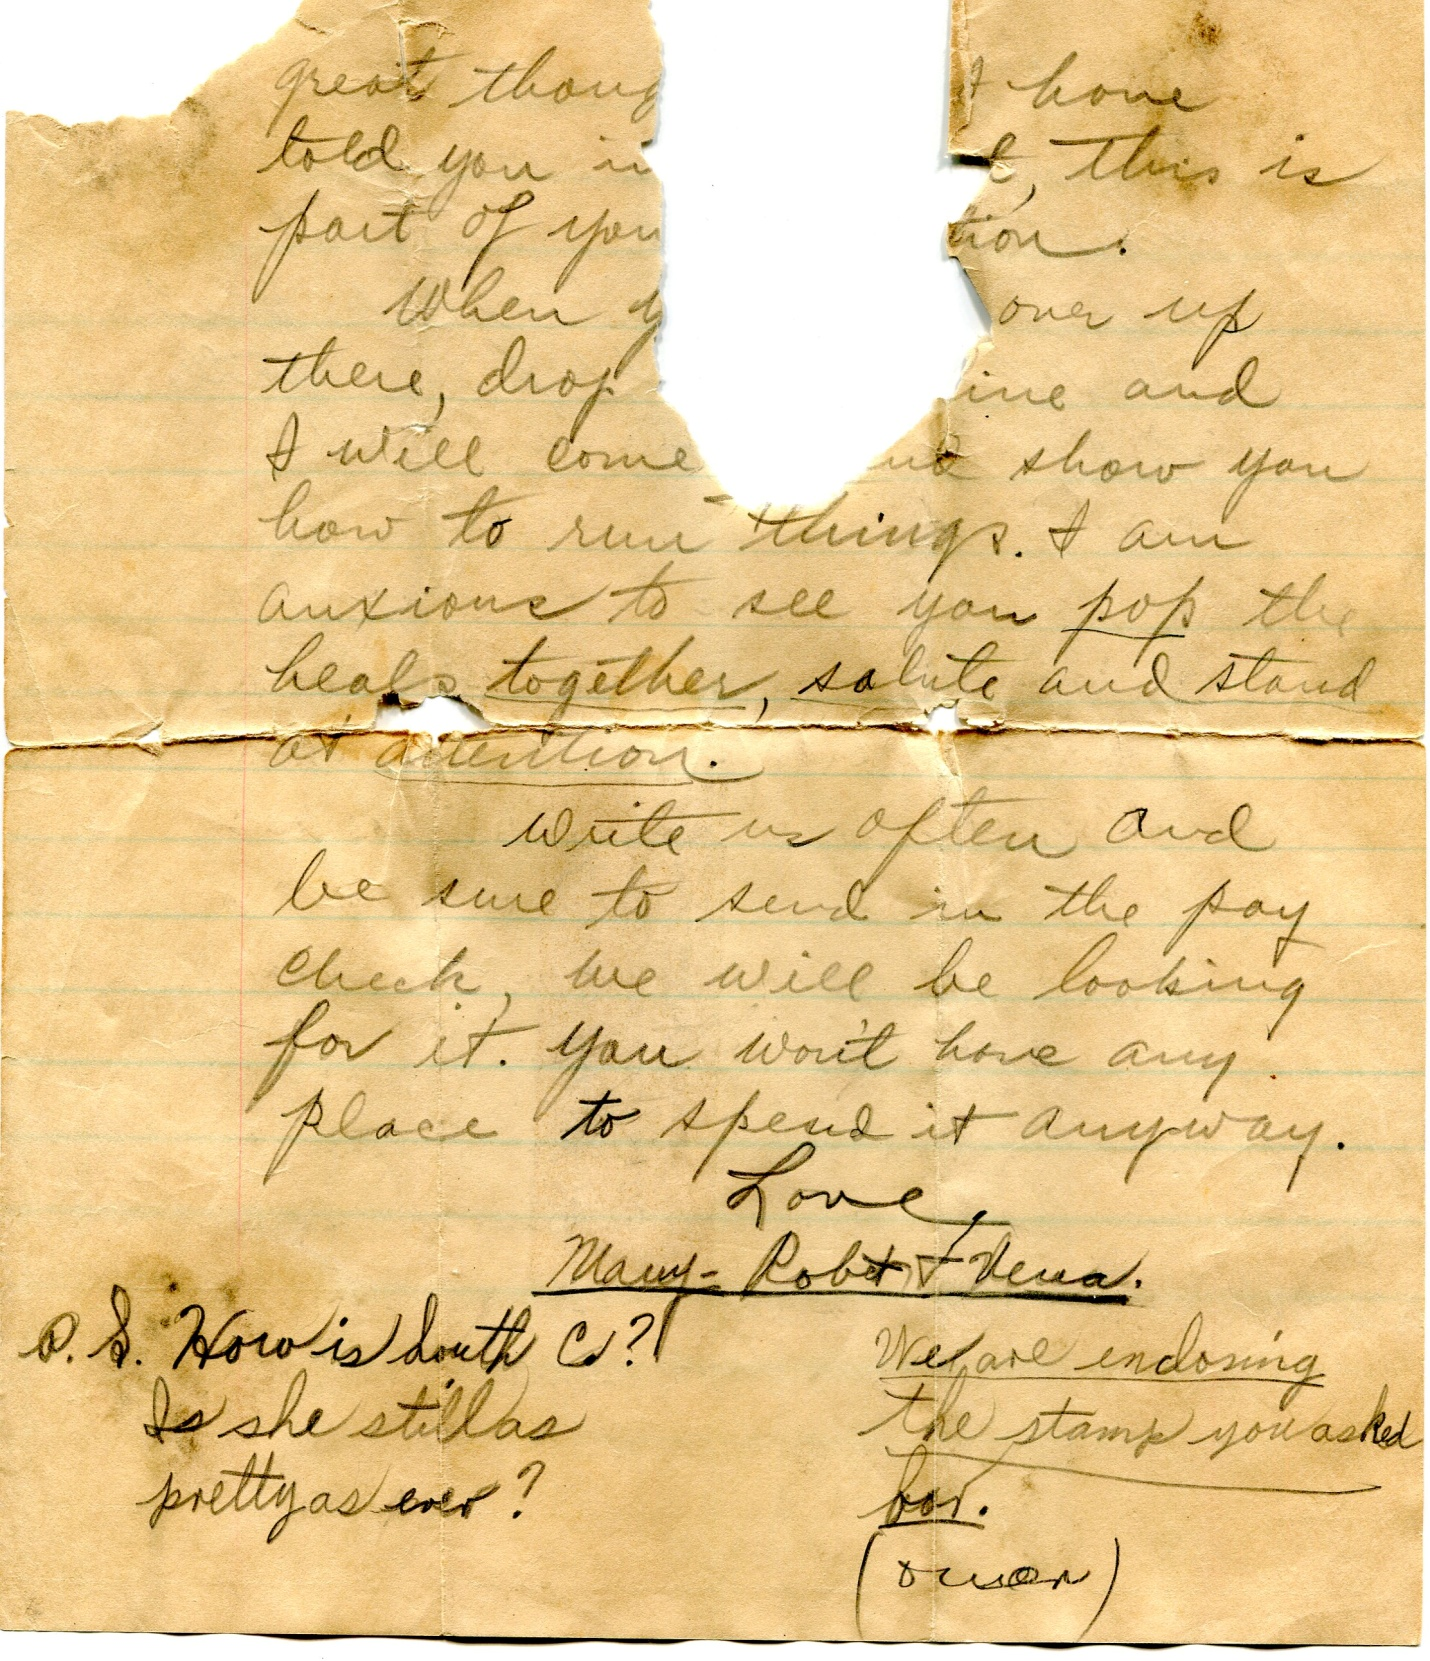 great thoug t have
told you in t, this is
part of you tion.
When y over up
there, drop ine and
I will come and show you
how to run things. I am
anxious to see you pop the
heals together, salute and stand
at attention.
Write us often and
be sure to send in the pay
check, we will be looking
for it. You won't have any
place to spend it anyway.
Love,
Mary- Robt & Verna.
P.S. How is South C.?
Is she still as
pretty as ever?
We are enclosing
the stamp you asked
for.
(over)